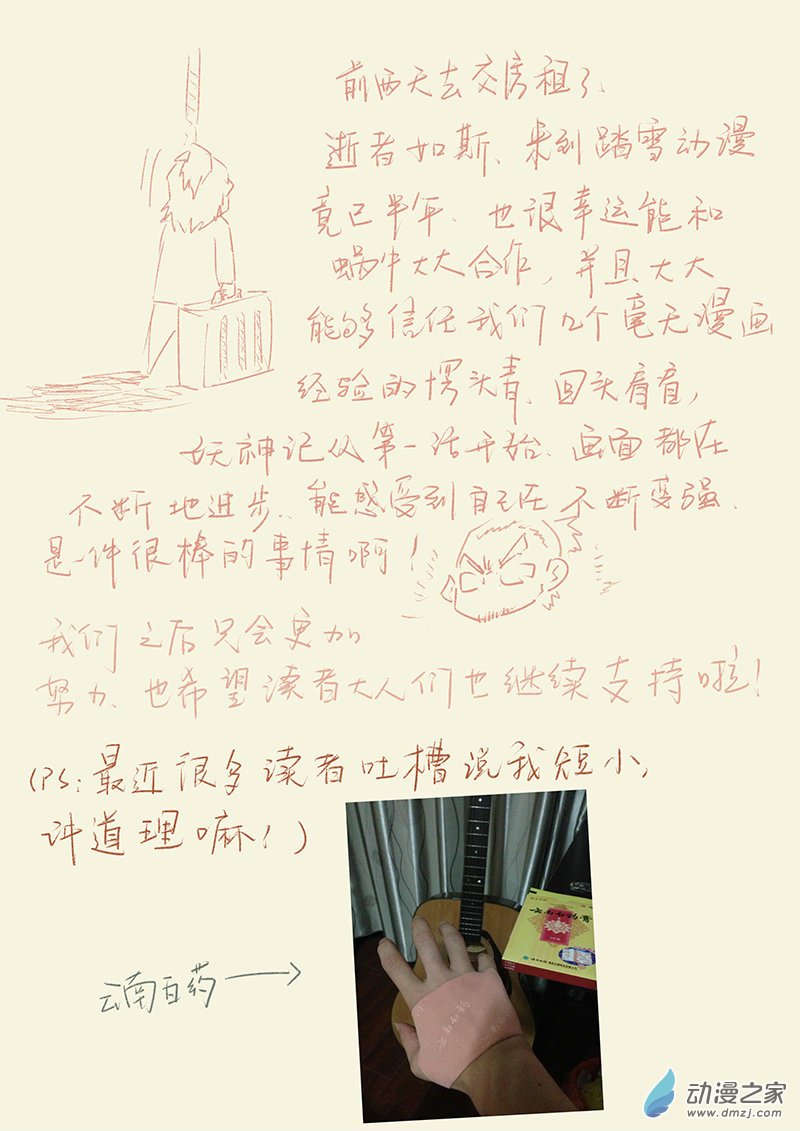 前两天去交房租了、
逝者如斯、来到踏雪动漫
竟已半年、也很幸运能和
蜗牛大大合作，并且大大
能够信任我们几个毫无漫画
经验的愣头青、回头看看，
妖神记从第一话开始、画面都在
不断地进步、能感受到自己在不断变强、
是一件很棒的事情啊！
我们之后只会更加
努力、也希望读者大人们也继续支持啦！
(PS：最近很多读者吐槽说我短小，
讲道理嘛！)
云南白药
云南白药膏
云南白药
动漫之家
www.dmzj.com